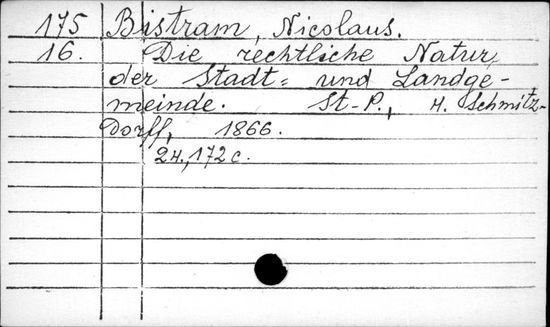 175 Bistram, Nicolaus.
16. Die rechtliche Natur
der Stadt= und Landge-
meinde. St-P., H. Schmitz-
Dorff, 1866.
2н., 172 с.